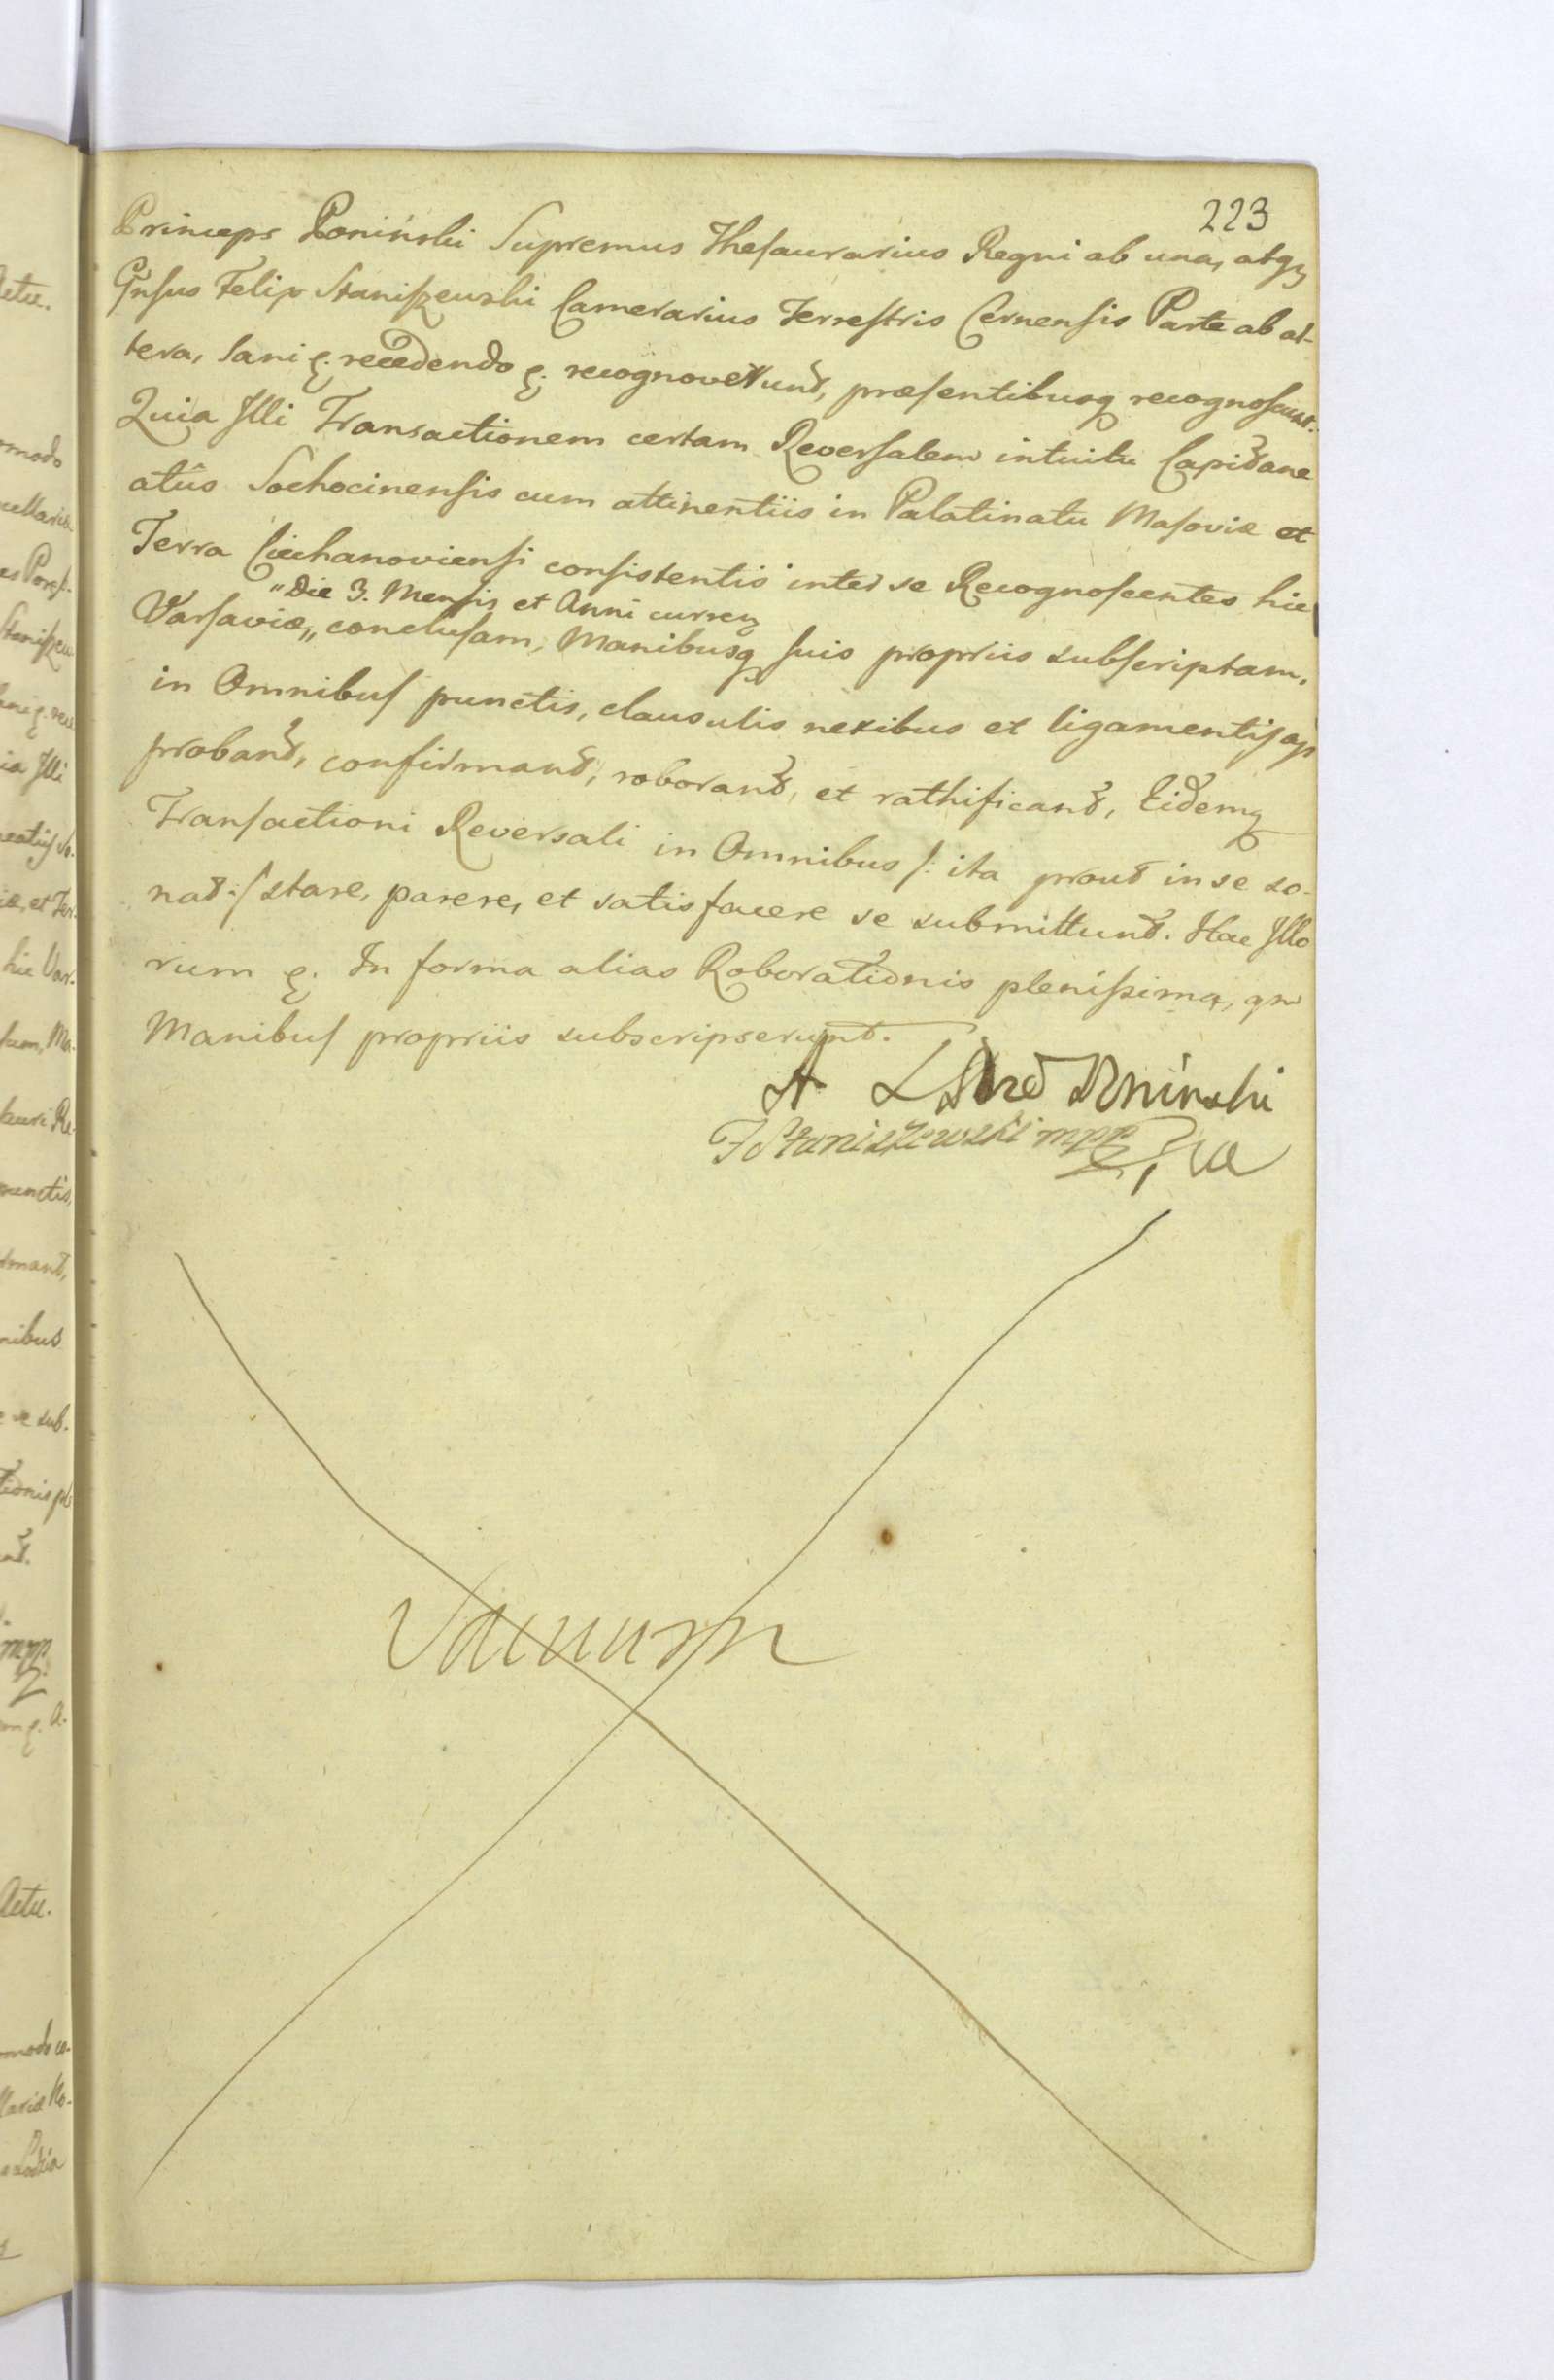 223
Princeps Poniński Supremus Thesaurarius Regni ab una, atq
Gnsus Felix Staniszewski Camerarius Terrestris Cernensis Parte ab al-
tera, sani &. recedendo &. recognoverunt, præsentibusq recognoscunt.
Quia Illi Transactionem certam Reversalem intuitu Capitane
atûs Sochocinensis cum attinentiis in Palatinatu Masoviæ et
Terra Ciechanoviensi consistentis inter se Recognoscentes hic
"Die 3. Mensis et Anni curren
Varsaviæ,, conclusam, Manibusq suis propriis subscriptam,
in Omnibus punctis, clausulis nexibus et ligamentis ap
probant, confirmant, roborant, et rathificant, Eidemq
Transactioni Reversali in Omnibus /: ita prout in se so-
nat :/ stare, parere, et satisfacere se submittunt. Hac Illo
rum &. In forma alias Roborationis plenissima, qm
Manibus propriis subscripserunt.
A Poninski
FStaniszewski mpp
Vacuum